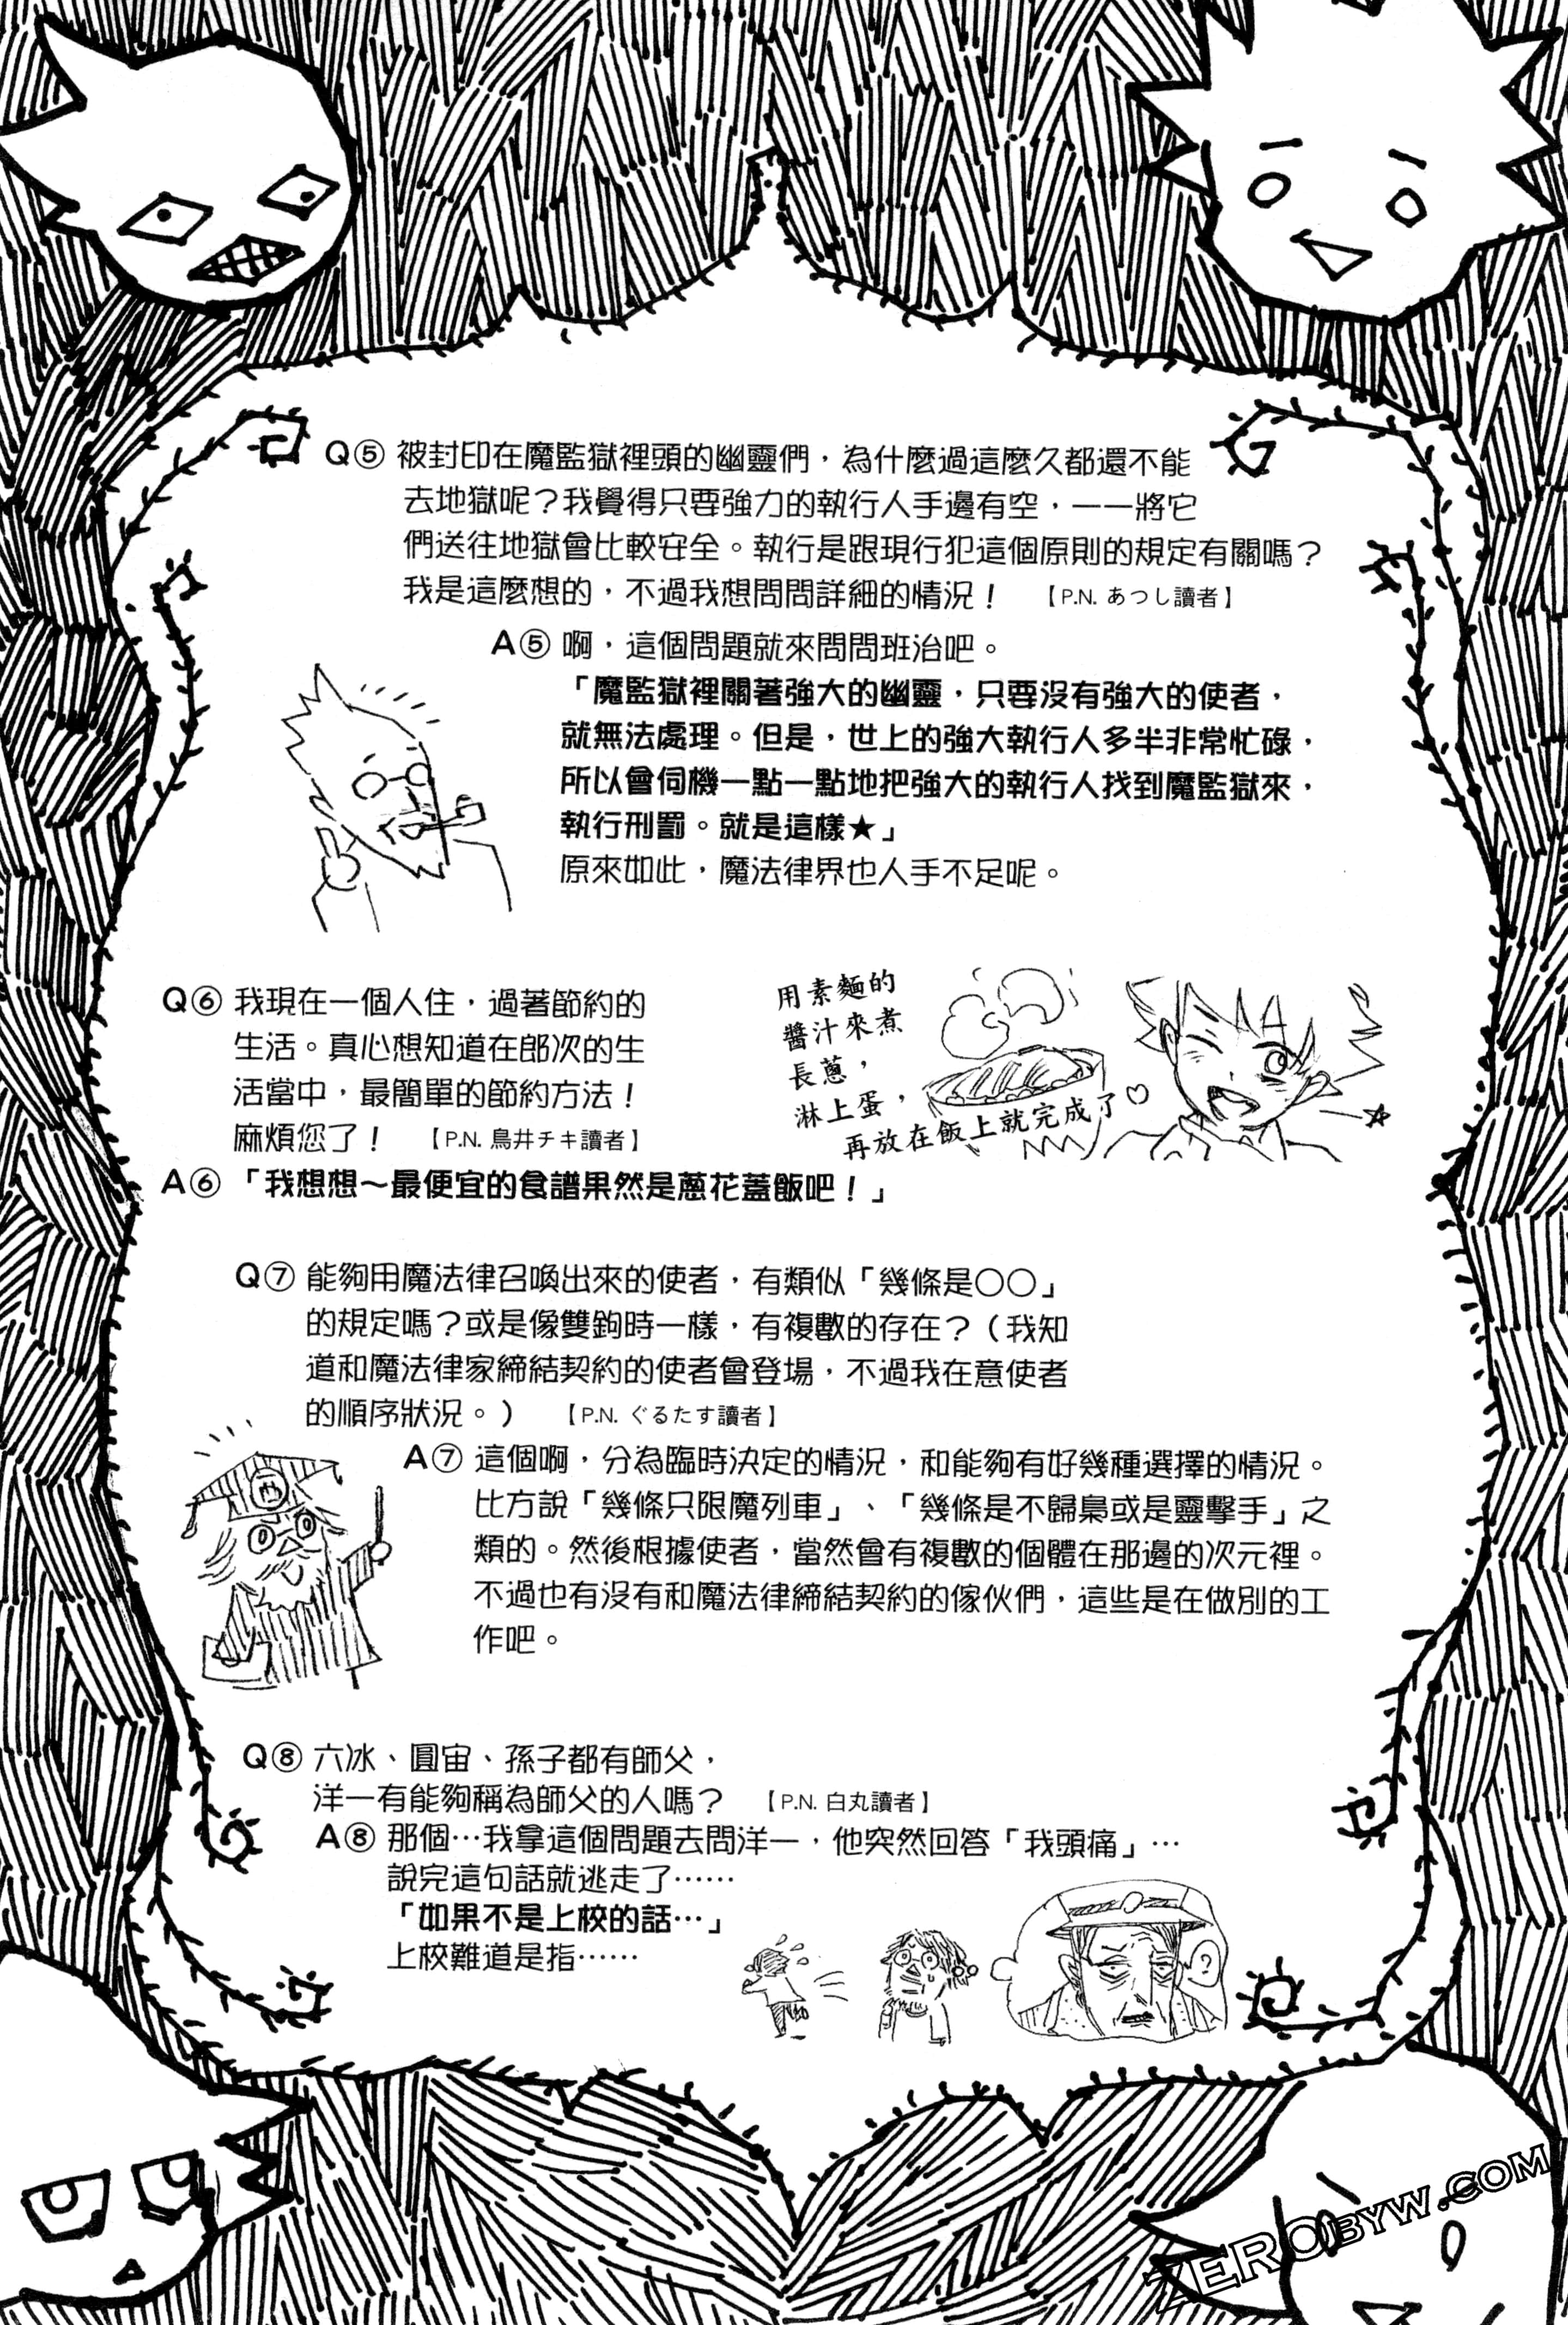 Q⑤ 被封印在魔監獄裡頭的幽靈們，為什麼過這麼久都還不能
去地獄呢？我覺得只要強力的執行人手邊有空，一一將它
們送往地獄會比較安全。執行是跟現行犯這個原則的規定有關嗎？
我是這麼想的，不過我想問問詳細的情況！ 【P.N. あつし讀者】
A⑤ 啊，這個問題就來問問班治吧。
「魔監獄裡關著強大的幽靈，只要沒有強大的使者，
就無法處理。但是，世上的強大執行人多半非常忙碌，
所以會伺機一點一點地把強大的執行人找到魔監獄來，
執行刑罰。就是這樣★」
原來如此，魔法律界也人手不足呢。
Q⑥ 我現在一個人住，過著節約的
生活。真心想知道在郎次的生
活當中，最簡單的節約方法！
麻煩您了！ 【P.N. 鳥井チキ讀者】
用素麵的
醬汁來煮
長蔥，
淋上蛋，
再放在飯上就完成了♡
A⑥ 「我想想～最便宜的食譜果然是蔥花蓋飯吧！」
Q⑦ 能夠用魔法律召喚出來的使者，有類似「幾條是○○」
的規定嗎？或是像雙鉤時一樣，有複數的存在？（我知
道和魔法律家締結契約的使者會登場，不過我在意使者
的順序狀況。） 【P.N. ぐるたす讀者】
A⑦ 這個啊，分為臨時決定的情況，和能夠有好幾種選擇的情況。
比方說「幾條只限魔列車」、「幾條是不歸梟或是靈擊手」之
類的。然後根據使者，當然會有複數的個體在那邊的次元裡。
不過也有沒有和魔法律締結契約的傢伙們，這些是在做別的工
作吧。
Q⑧ 六冰、圓宙、孫子都有師父，
洋一有能夠稱為師父的人嗎？ 【P.N. 白丸讀者】
A⑧ 那個…我拿這個問題去問洋一，他突然回答「我頭痛」…
說完這句話就逃走了……
「如果不是上校的話…」
上校難道是指……
?
ZEROBYW.COM